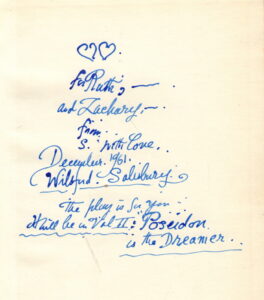 for Ruth, —
and Zachary, —
from
S. with love.
December. 1961.
Wilford. Salisbury.
the play is Six you
It will be in Vol II: Poseidon
is the Dreamer..